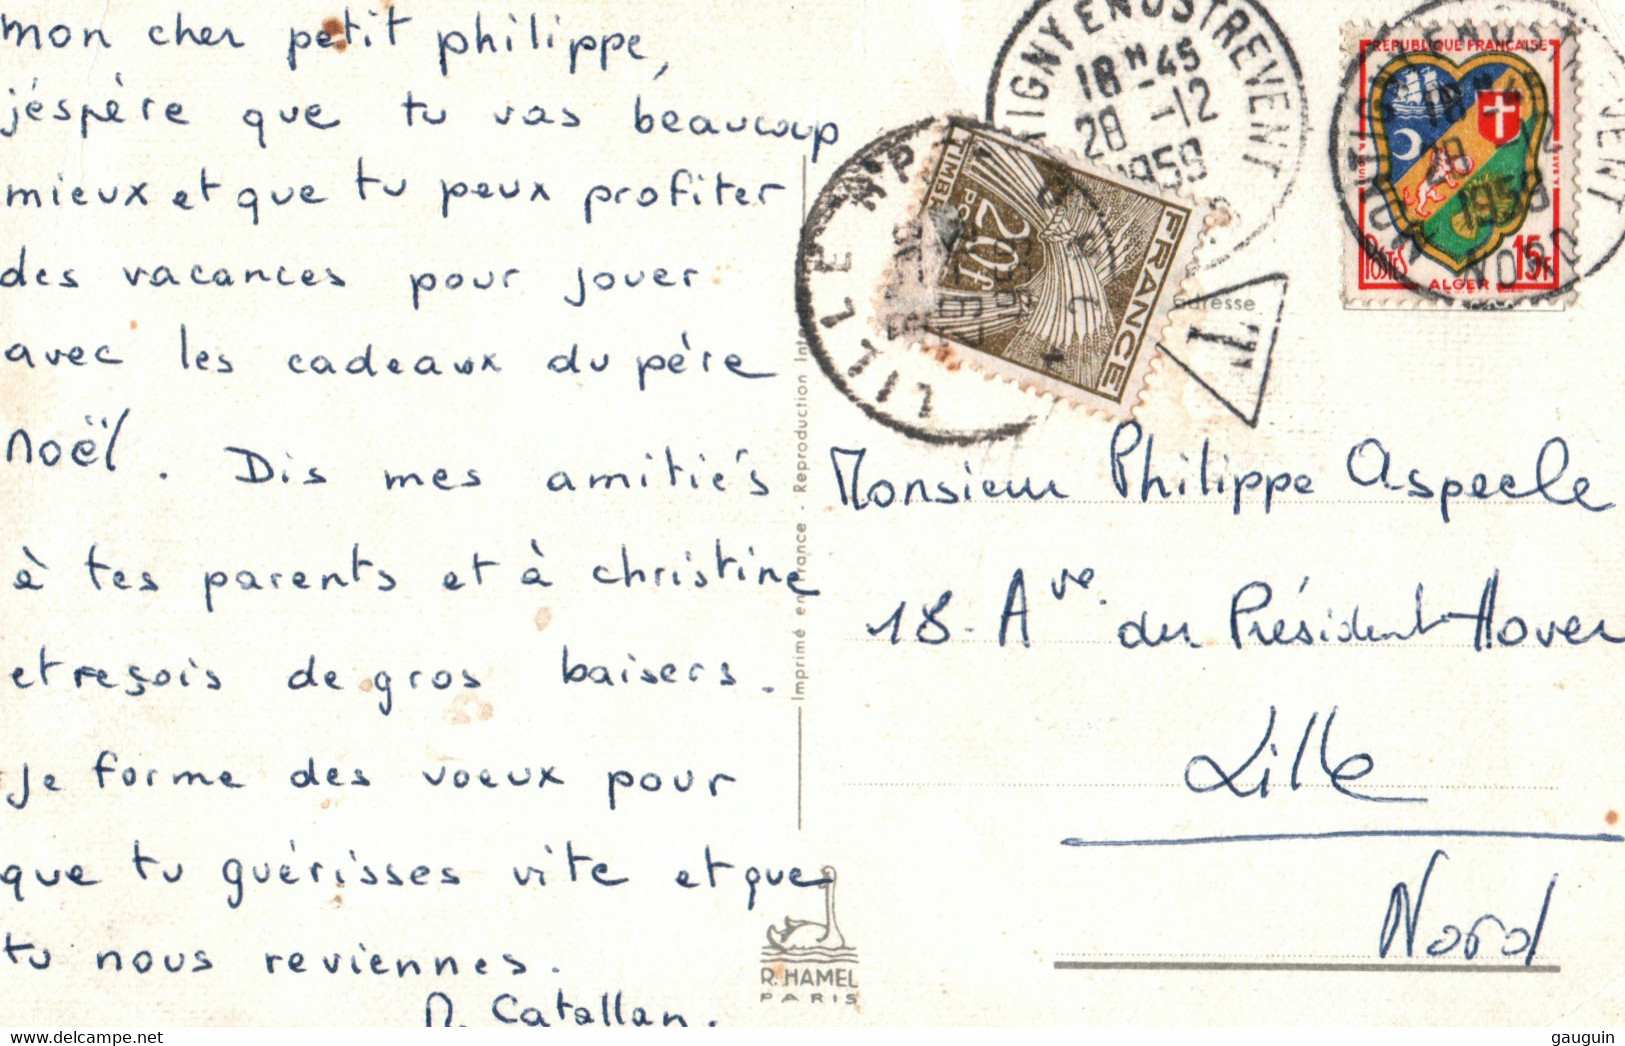 mon cher petit philippe,
j'éspère que tu vas beaucoup
mieux et que tu peux profiter
des vacances pour jouer
avec les cadeaux du père
noël. Dis mes amitiés
à tes parents et à christine
et reçois de gros baisers.
je forme des voeux pour
que tu guérisses vite et que
tu nous reviennes.
Catallan.
Imprimé en France - Reproduction Inte
R. HAMEL
PARIS
IGNY EN OSTREVENT
18H-45
28 -12
1959
REPUBLIQUE FRANÇAISE
POSTES
15F
ALGER
NORD
1959
LILLE
TIMBR
20F
FRANCE
T
Adresse
Monsieur Philippe
18. Ave. du Président Hover
Lille
Nord
gauguin